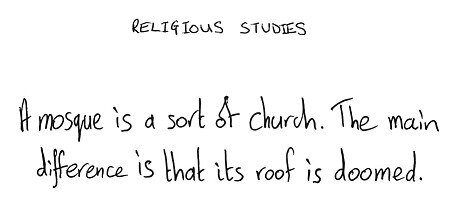 RELIGIOUS STUDIES
A mosque is a sort of church. The main
difference is that its roof is doomed.